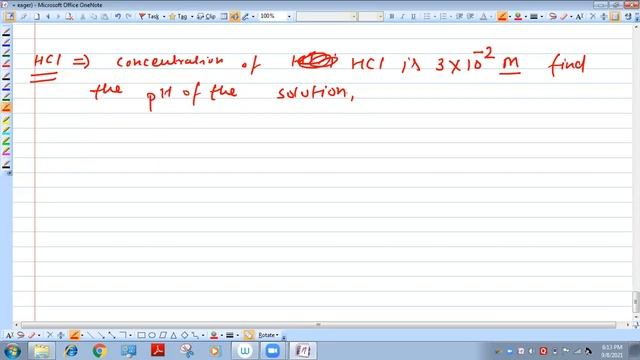 + eager) - Microsoft Office OneNote
Task
100%
HCl ⇒ concentration of HCl is 3×10⁻² M find
the pH of the solution,
Rotate
6:13 PM
9/8/2021